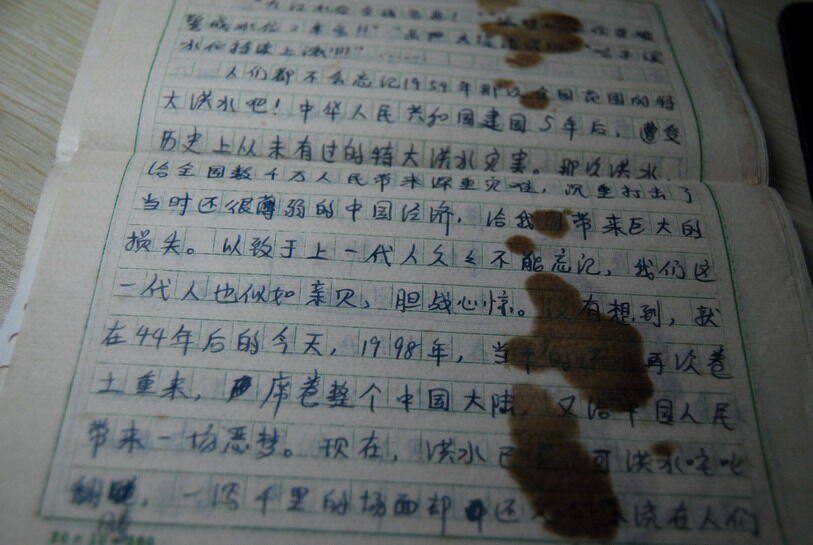 九江水位
警戒水位
水位持续上涨!!!" ……
人们都不会忘记1954年那次全国范围的特
大洪水吧!中华人民共和国建国5年后,遭受
历史上从未有过的特大洪水灾害。那次洪水,
给全国数千万人民带来深重灾难,沉重打击了
当时还很薄弱的中国经济,给我国带来巨大的
损失。以致于上一代人久久不能忘记,我们这
一代人也似如亲见,胆战心惊。没有想到,就
在44年后的今天,1998年,当年的 再次卷
土重来,席卷整个中国大陆,又给中国人民
带来一场恶梦。现在,洪水已 ,可洪水咤叱
,一泻千里的场面却还 浇在人们